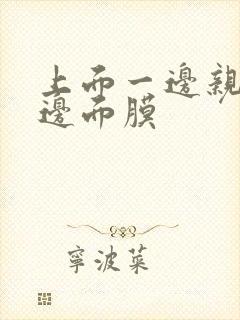 上而一邊親
邊而膜
寧波菜